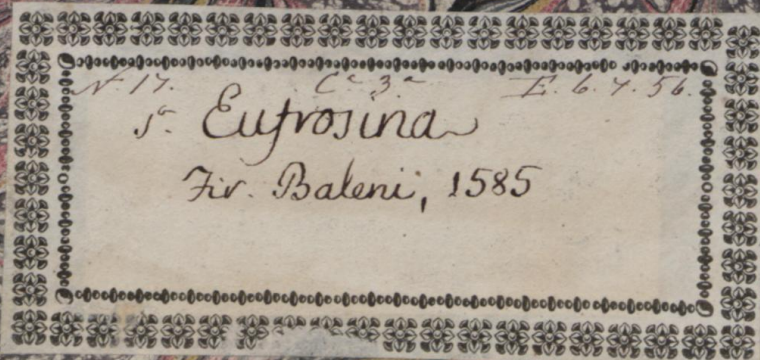 N. 17. Cª 3ª E. 6. 7. 56.
Sª Eufrosina
Fir. Baleni, 1585